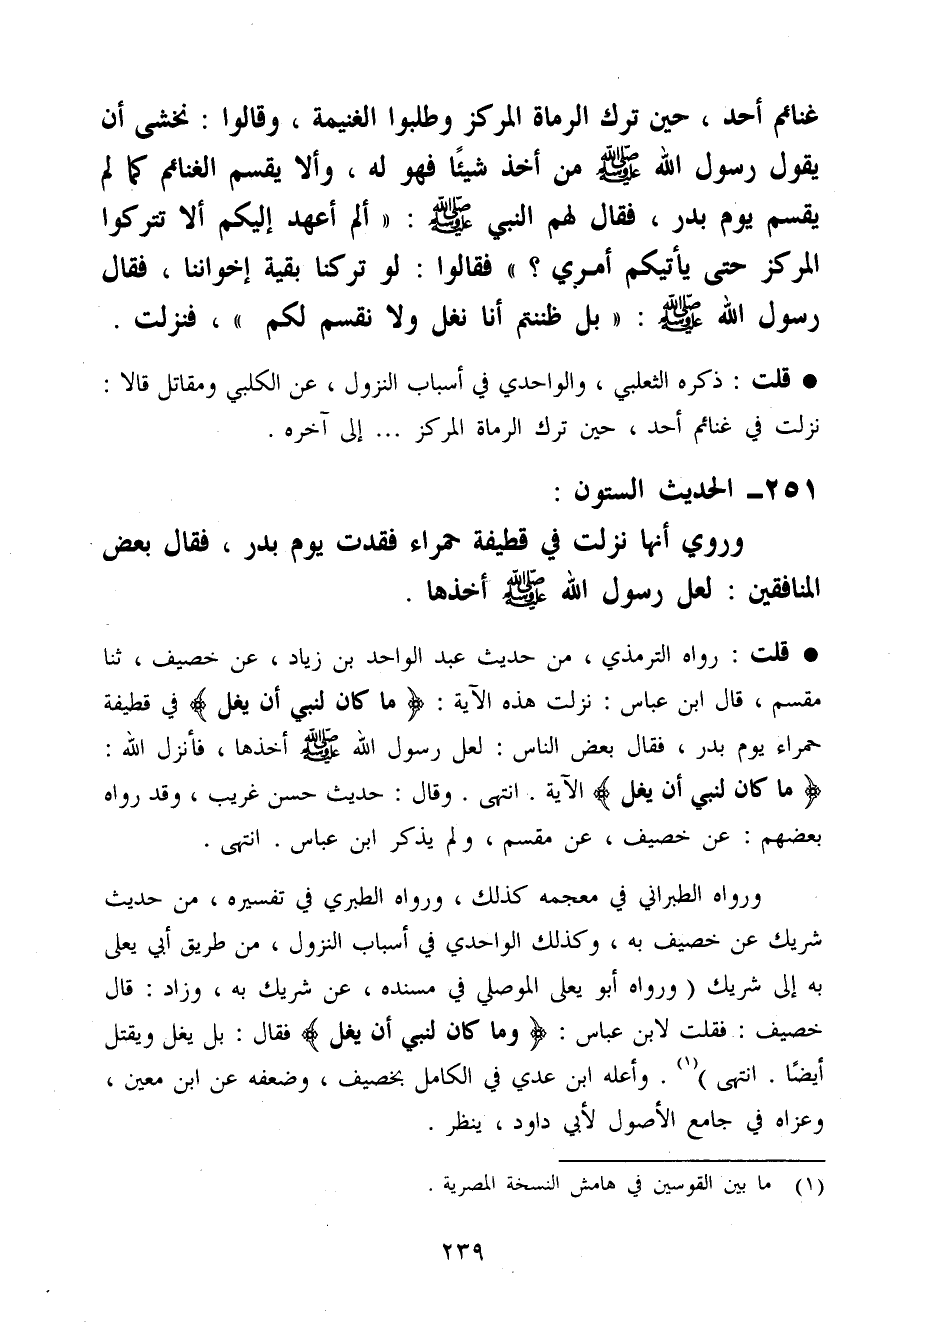 غنائم أحد ، حين ترك الرماة المركز وطلبوا الغنيمة ، وقالوا : نخشى أن
يقول رسول الله ﷺ من أخذ شيئًا فهو له ، وألا يقسم الغنائم كما لم
يقسم يوم بدر ، فقال لهم النبي ﷺ : « ألم أعهد إليكم ألا تتركوا
المركز حتى يأتيكم أمري ؟ » فقالوا : لو تركنا بقية إخواننا ، فقال
رسول الله ﷺ : « بل ظننتم أنا نغل ولا نقسم لكم » ، فنزلت .
● قلت : ذكره الثعلبي ، والواحدي في أسباب النزول ، عن الكلبي ومقاتل قالا :
نزلت في غنائم أحد ، حين ترك الرماة المركز ... إلى آخره .
٢٥١ـ الحديث الستون :
وروي أنها نزلت في قطيفة حمراء فقدت يوم بدر ، فقال بعض
المنافقين : لعل رسول الله ﷺ أخذها .
● قلت : رواه الترمذي ، من حديث عبد الواحد بن زياد ، عن خصيف ، ثنا
مقسم ، قال ابن عباس : نزلت هذه الآية : ﴿ ما كان لنبي أن يغل ﴾ في قطيفة
حمراء يوم بدر ، فقال بعض الناس : لعل رسول الله ﷺ أخذها ، فأنزل الله :
﴿ ما كان لنبي أن يغل ﴾ الآية . انتهى . وقال : حديث حسن غريب ، وقد رواه
بعضهم : عن خصيف ، عن مقسم ، ولم يذكر ابن عباس . انتهى .
ورواه الطبراني في معجمه كذلك ، ورواه الطبري في تفسيره ، من حديث
شريك عن خصيف به ، وكذلك الواحدي في أسباب النزول ، من طريق أبي يعلى
به إلى شريك ( ورواه أبو يعلى الموصلي في مسنده ، عن شريك به ، وزاد : قال
خصيف : فقلت لابن عباس : ﴿ وما كان لنبي أن يغل ﴾ فقال : بل يغل ويقتل
أيضًا . انتهى )(١) . وأعله ابن عدي في الكامل بخصيف ، وضعفه عن ابن معين ،
وعزاه في جامع الأصول لأبي داود ، ينظر .
(١) ما بين القوسين في هامش النسخة المصرية .
٢٣٩